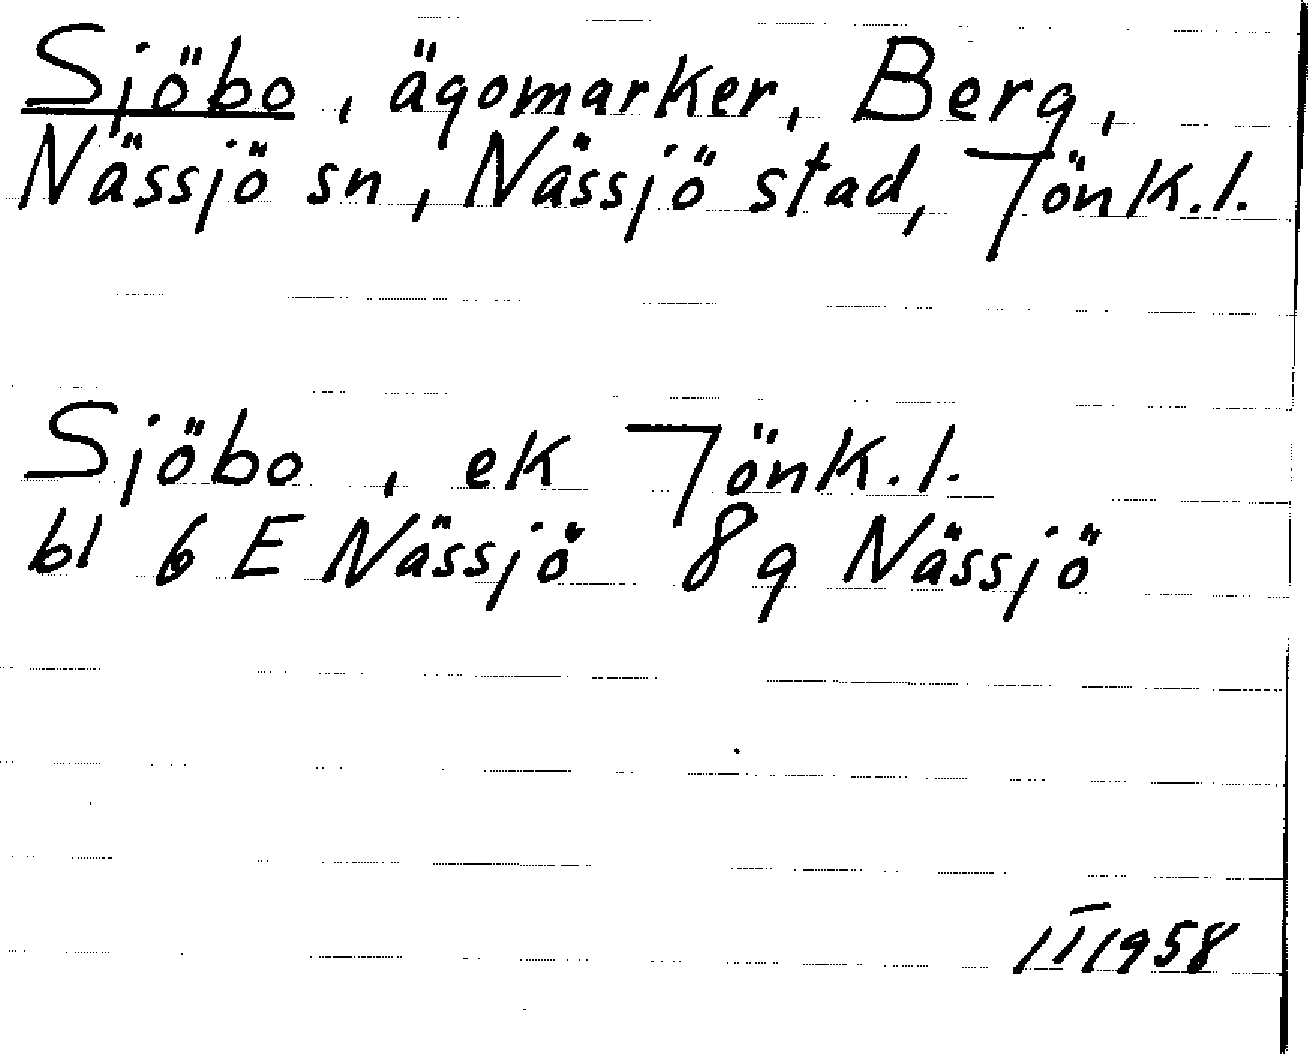 Sjöbo, ägomarker, Berg,
Nässjö sn, Nässjö stad, Jönk.l.
Sjöbo, ek Jönk.l.
bl 6 E Nässjö 8g Nässjö
1958